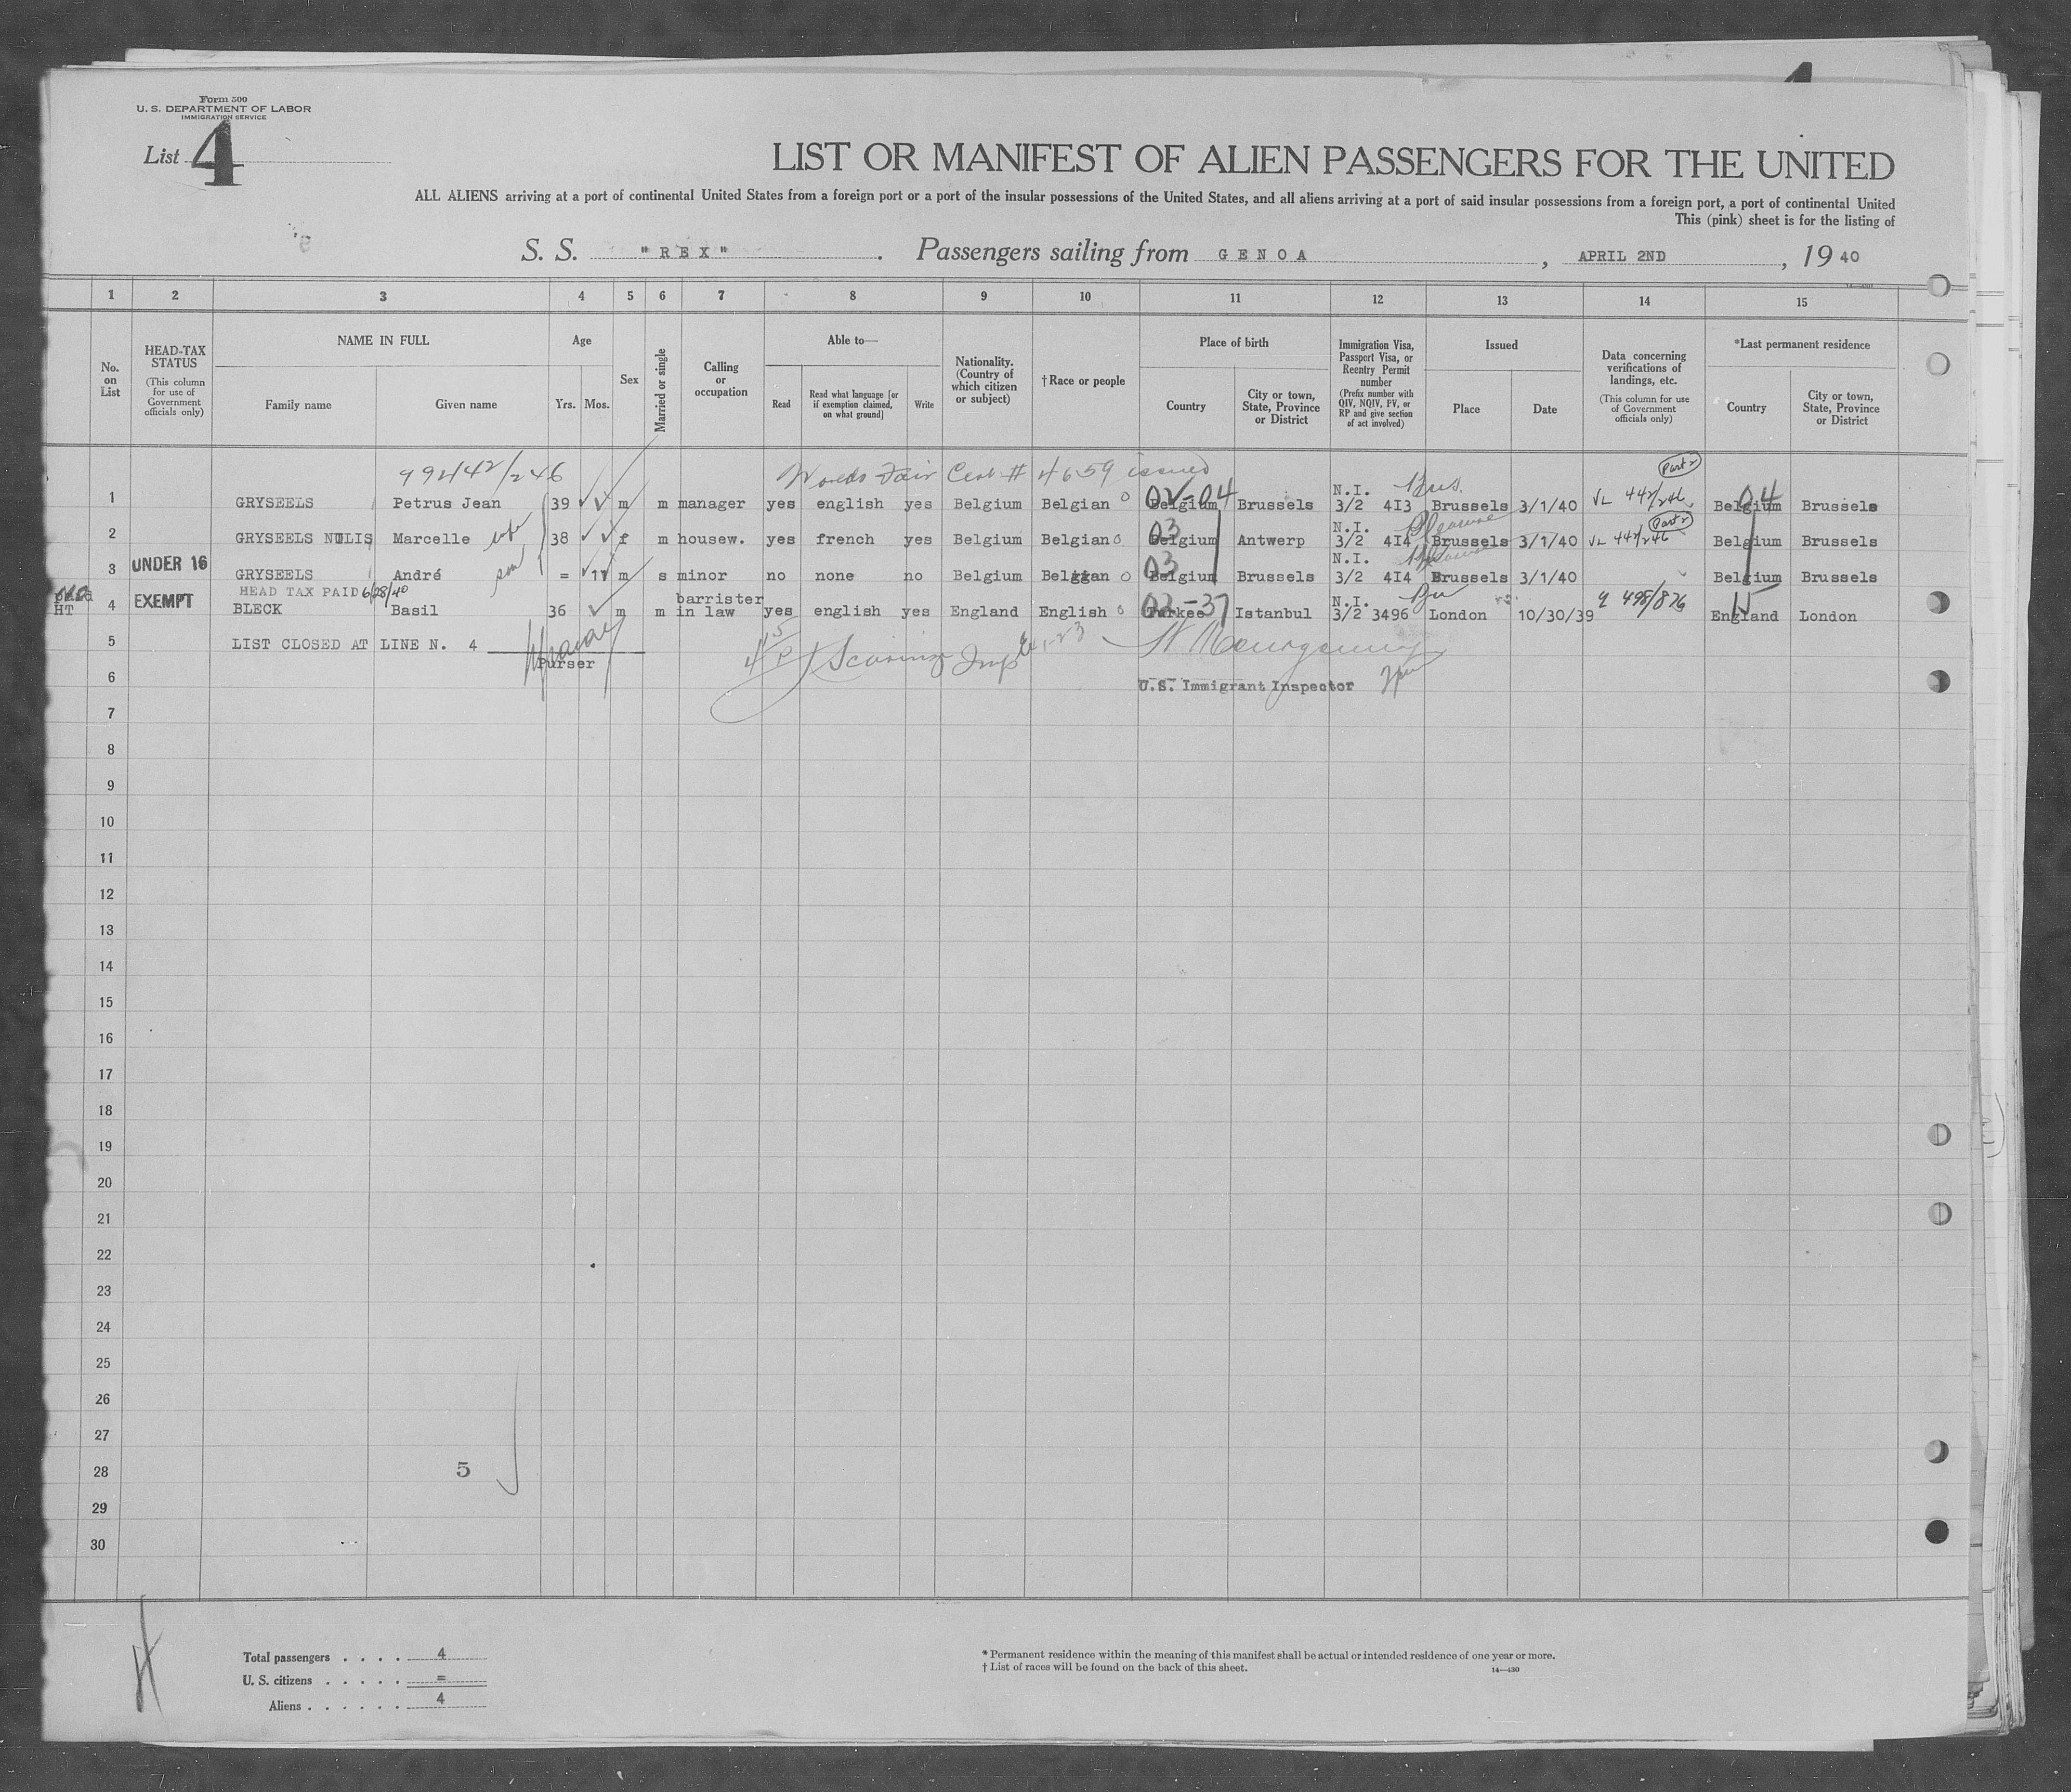 Form 500
U. S. DEPARTMENT OF LABOR
IMMIGRATION SERVICE
List 4
LIST OR MANIFEST OF ALIEN PASSENGERS FOR THE UNITED
ALL ALIENS arriving at a port of continental United States from a foreign port or a port of the insular possessions of the United States, and all aliens arriving at a port of said insular possessions from a foreign port, a port of continental United
This (pink) sheet is for the listing of
S. S. "REX". Passengers sailing from GENOA, APRIL 2ND, 1940
1 2 3 4 5 6 7 8 9 10 11 12 13 14 15
No. on List
HEAD-TAX STATUS (This column for use of Government officials only)
NAME IN FULL
Family name Given name
Age
Yrs. Mos.
Sex
Married or single
Calling or occupation
Able to—
Read
Read what language [or if exemption claimed, on what ground]
Write
Nationality. (Country of which citizen or subject)
†Race or people
Place of birth
Country
City or town, State, Province or District
Immigration Visa, Passport Visa, or Reentry Permit number (Prefix number with QIV, NQIV, PV, or RP and give section of act involved)
Issued
Place Date
Data concerning verifications of landings, etc. (This column for use of Government officials only)
*Last permanent residence
Country
City or town, State, Province or District
99442/246 Worlds Fair Cert # 4659 issued
1 GRYSEELS Petrus Jean 39 m m manager yes english yes Belgium Belgian 02-04 Belgium Brussels N.I. 3/2 413 Brussels 3/1/40 VL 442/246 Belgium 04 Brussels
2 GRYSEELS NULIS Marcelle wife 38 f m housew. yes french yes Belgium Belgian 03 Belgium Antwerp N.I. 3/2 414 Brussels 3/1/40 VL 442/246 Belgium Brussels
3 UNDER 16 GRYSEELS André son = 11 m s minor no none no Belgium Belgian 03 Belgium Brussels N.I. 3/2 414 Brussels 3/1/40 Belgium Brussels
HEAD TAX PAID 6/28/40
HT 4 EXEMPT BLECK Basil 36 m m barrister in law yes english yes England English 02-37 Turkee Istanbul N.I. 3/2 3496 London 10/30/39 498/876 England London
5 LIST CLOSED AT LINE N. 4
Purser
6 U.S. Immigrant Inspector
7
8
9
10
11
12
13
14
15
16
17
18
19
20
21
22
23
24
25
26
27
28 5
29
30
Total passengers . . . . 4
U. S. citizens . . . . . =
Aliens . . . . . . 4
* Permanent residence within the meaning of this manifest shall be actual or intended residence of one year or more.
† List of races will be found on the back of this sheet.
14—430